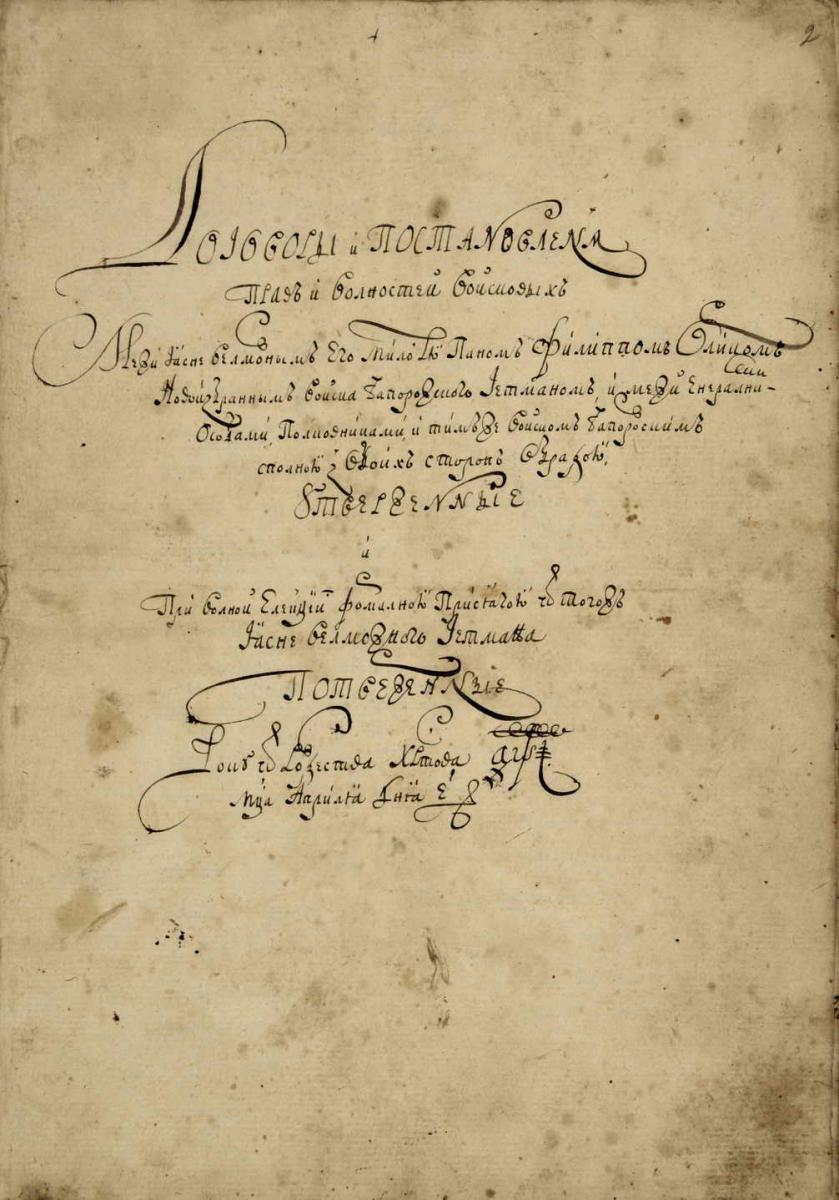 2
Договоры и Постановленя
Правъ и волностей войсковыхъ
Межи Ясне велможнымъ Его милостю Паномъ Филиппомъ Орликомъ
Новоизбраннымъ войска Запорожского Гетманомъ, и межи Енералними
Особами, Полковниками, и тимъже войскомъ Запорожскимъ
сполною з обоихъ сторонъ обрадою,
Утверженныіе
и
При волной Елекціи формалною Присягою ѿ тогожъ
Ясне велможного Гетмана
Потверженныіе
Року ѿ Рожества Христова ҂аѱі.
мца Априля дня е҃